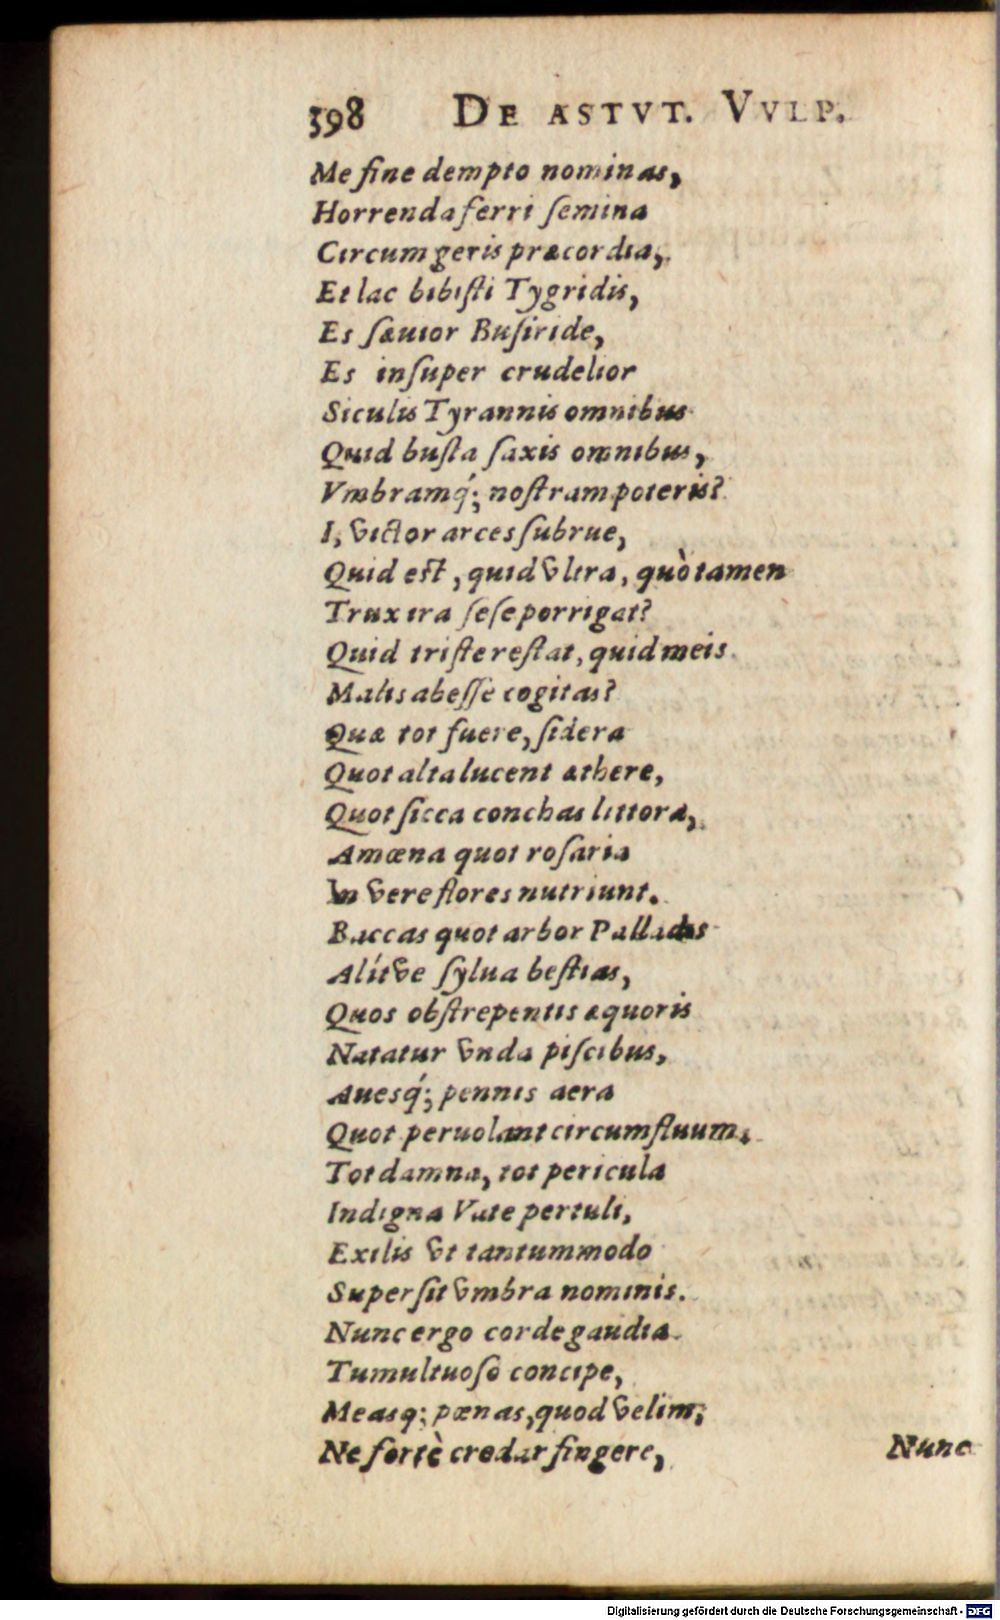 398 DE ASTVT. VVLP.
Me ſine dempto nominas,
Horrenda ferri ſemina
Circum geris præcordia,
Et lac bibiſti Tygridis,
Es ſæuior Buſiride,
Es inſuper crudelior
Siculis Tyrannis omnibus
Quid buſta ſaxis omnibus,
Vmbramq́; noſtram poteris?
I, victor arces ſubrue,
Quid eſt, quid vltra, quò tamen
Trux ira ſeſe porrigat?
Quid triſte reſtat, quid meis
Malis abeſſe cogitas?
Quæ tot fuere, ſidera
Quot alta lucent æthere,
Quot ſicca conchas littora,
Amœna quot roſaria
In vere flores nutriunt.
Baccas quot arbor Palladis
Alítve ſylua beſtias,
Quos obſtrepentis æquoris
Natatur vnda piſcibus,
Auesq́; pennis aera
Quot peruolant circumfluum,
Tot damna, tot pericula
Indigna Vate pertuli,
Exilis vt tantummodo
Superſit vmbra nominis.
Nunc ergo corde gaudia
Tumultuoſo concipe,
Measq; pœnas, quod velim,
Ne fortè credar fingere,
Nunc
Digitalisierung gefördert durch die Deutsche Forschungsgemeinschaft - DFG